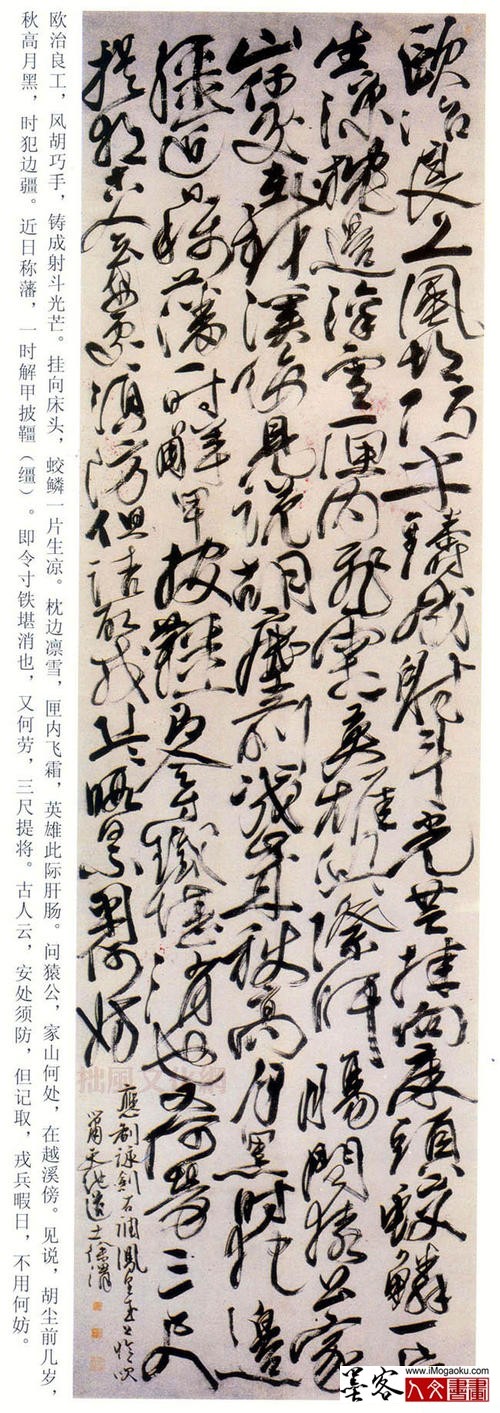 歐冶良工風胡巧手鑄成射斗光芒挂向床頭蛟鱗一片
生凉枕邊凜雪匣内飛霜英雄此際肝腸問猿公家
山何處在越溪傍見説胡塵前幾歲秋高月黑時犯邊
疆近日稱藩一時解甲披韁即令寸鐵堪消也又何勞三尺
提將古人云安處須防但記取戎兵暇日不用何妨
應制詠劍右調鳳凰臺上憶吹
簫天池道士徐渭
欧治良工，风胡巧手，铸成射斗光芒。挂向床头，蛟鳞一片生凉。枕边凛雪，匣内飞霜，英雄此际肝肠。问猿公，家山何处，在越溪傍。见说，胡尘前几岁，
秋高月黑，时犯边疆。近日称藩，一时解甲披韁（缰）。即令寸铁堪消也，又何劳，三尺提将。古人云，安处须防，但记取，戎兵暇日，不用何妨。
拙風文化網
墨客 www.iMogaoku.com
人文書畫